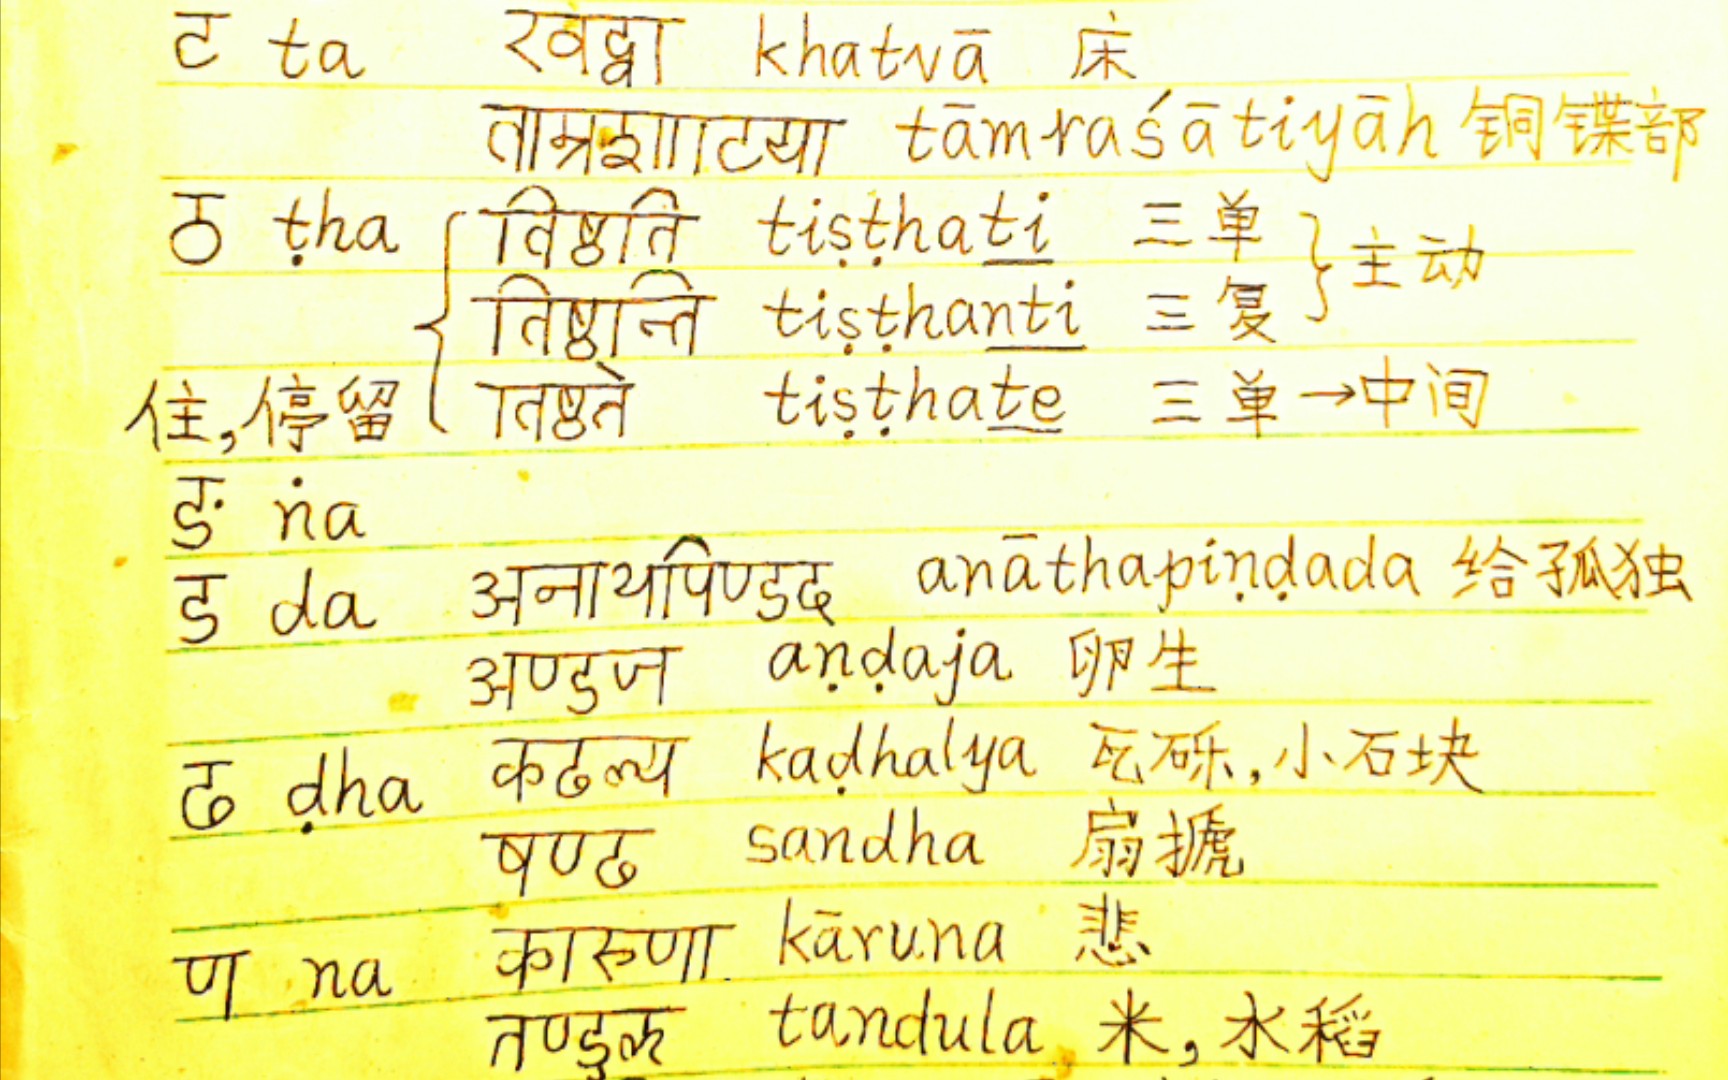 ट ta खट्वा khatvā 床
ताम्रशाटिया tāmraśātiyāh 铜鍱部
ठ ṭha तिष्ठति tiṣṭhati 三单
तिष्ठन्ति tiṣṭhanti 三复 主动
住,停留 तिष्ठते tiṣṭhate 三单→中间
ङ ṅa
ड da अनाथपिण्डद anāthapiṇḍada 给孤独
अण्डज aṇḍaja 卵生
ढ ḍha कढल्य kaḍhalya 瓦砾,小石块
षण्ढ sandha 扇搋
ण na कारुणा kāruna 悲
तण्डुल tandula 米,水稻